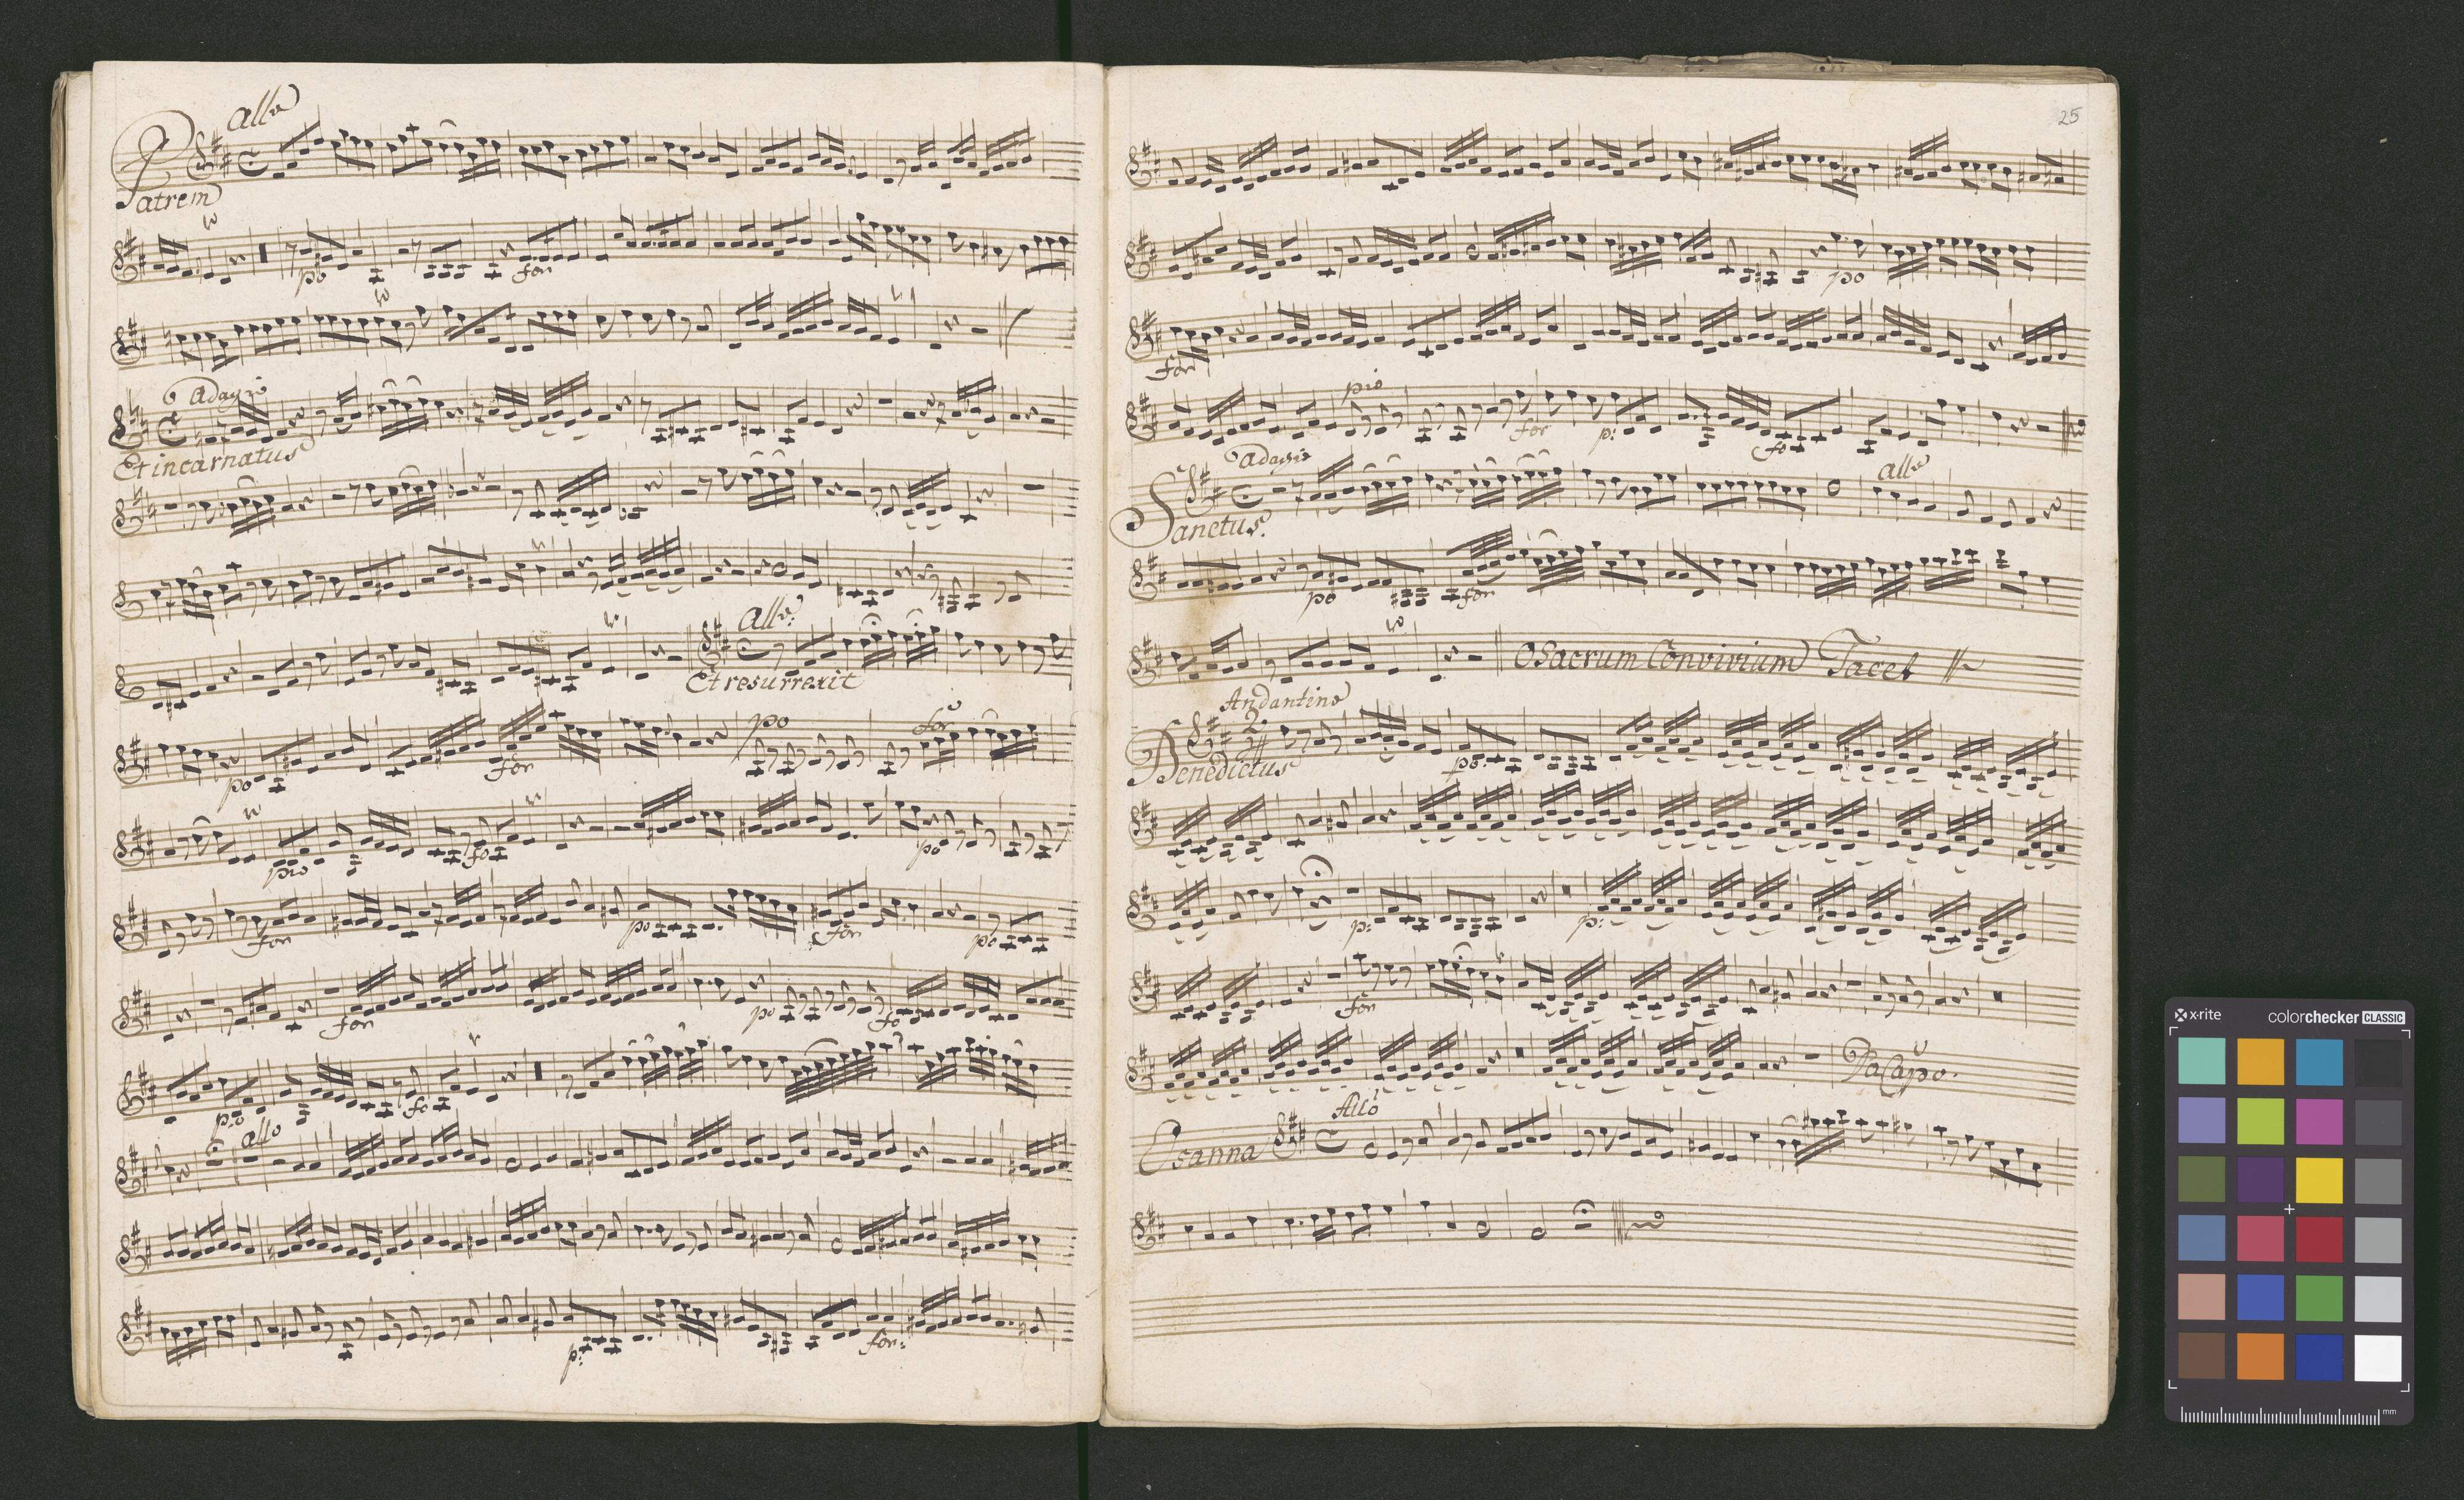 Allo
Patrem
po
for
Adagio
Et incarnatus
Allo:
Et resurrexit
po
for
po
for
pio
fo
po
for
po
for
po
for
po
fo
pio
fo
allo
p:
for:
25
po
for
pio
for
p:
fo
Adagio
allo
Sanctus.
po
for
O Sacrum Convivium Tacet
Andantino
2
4
Benedictus
po.
p:
p:
for
Da Capo.
Allo
Osanna
x·rite
colorchecker CLASSIC
mm